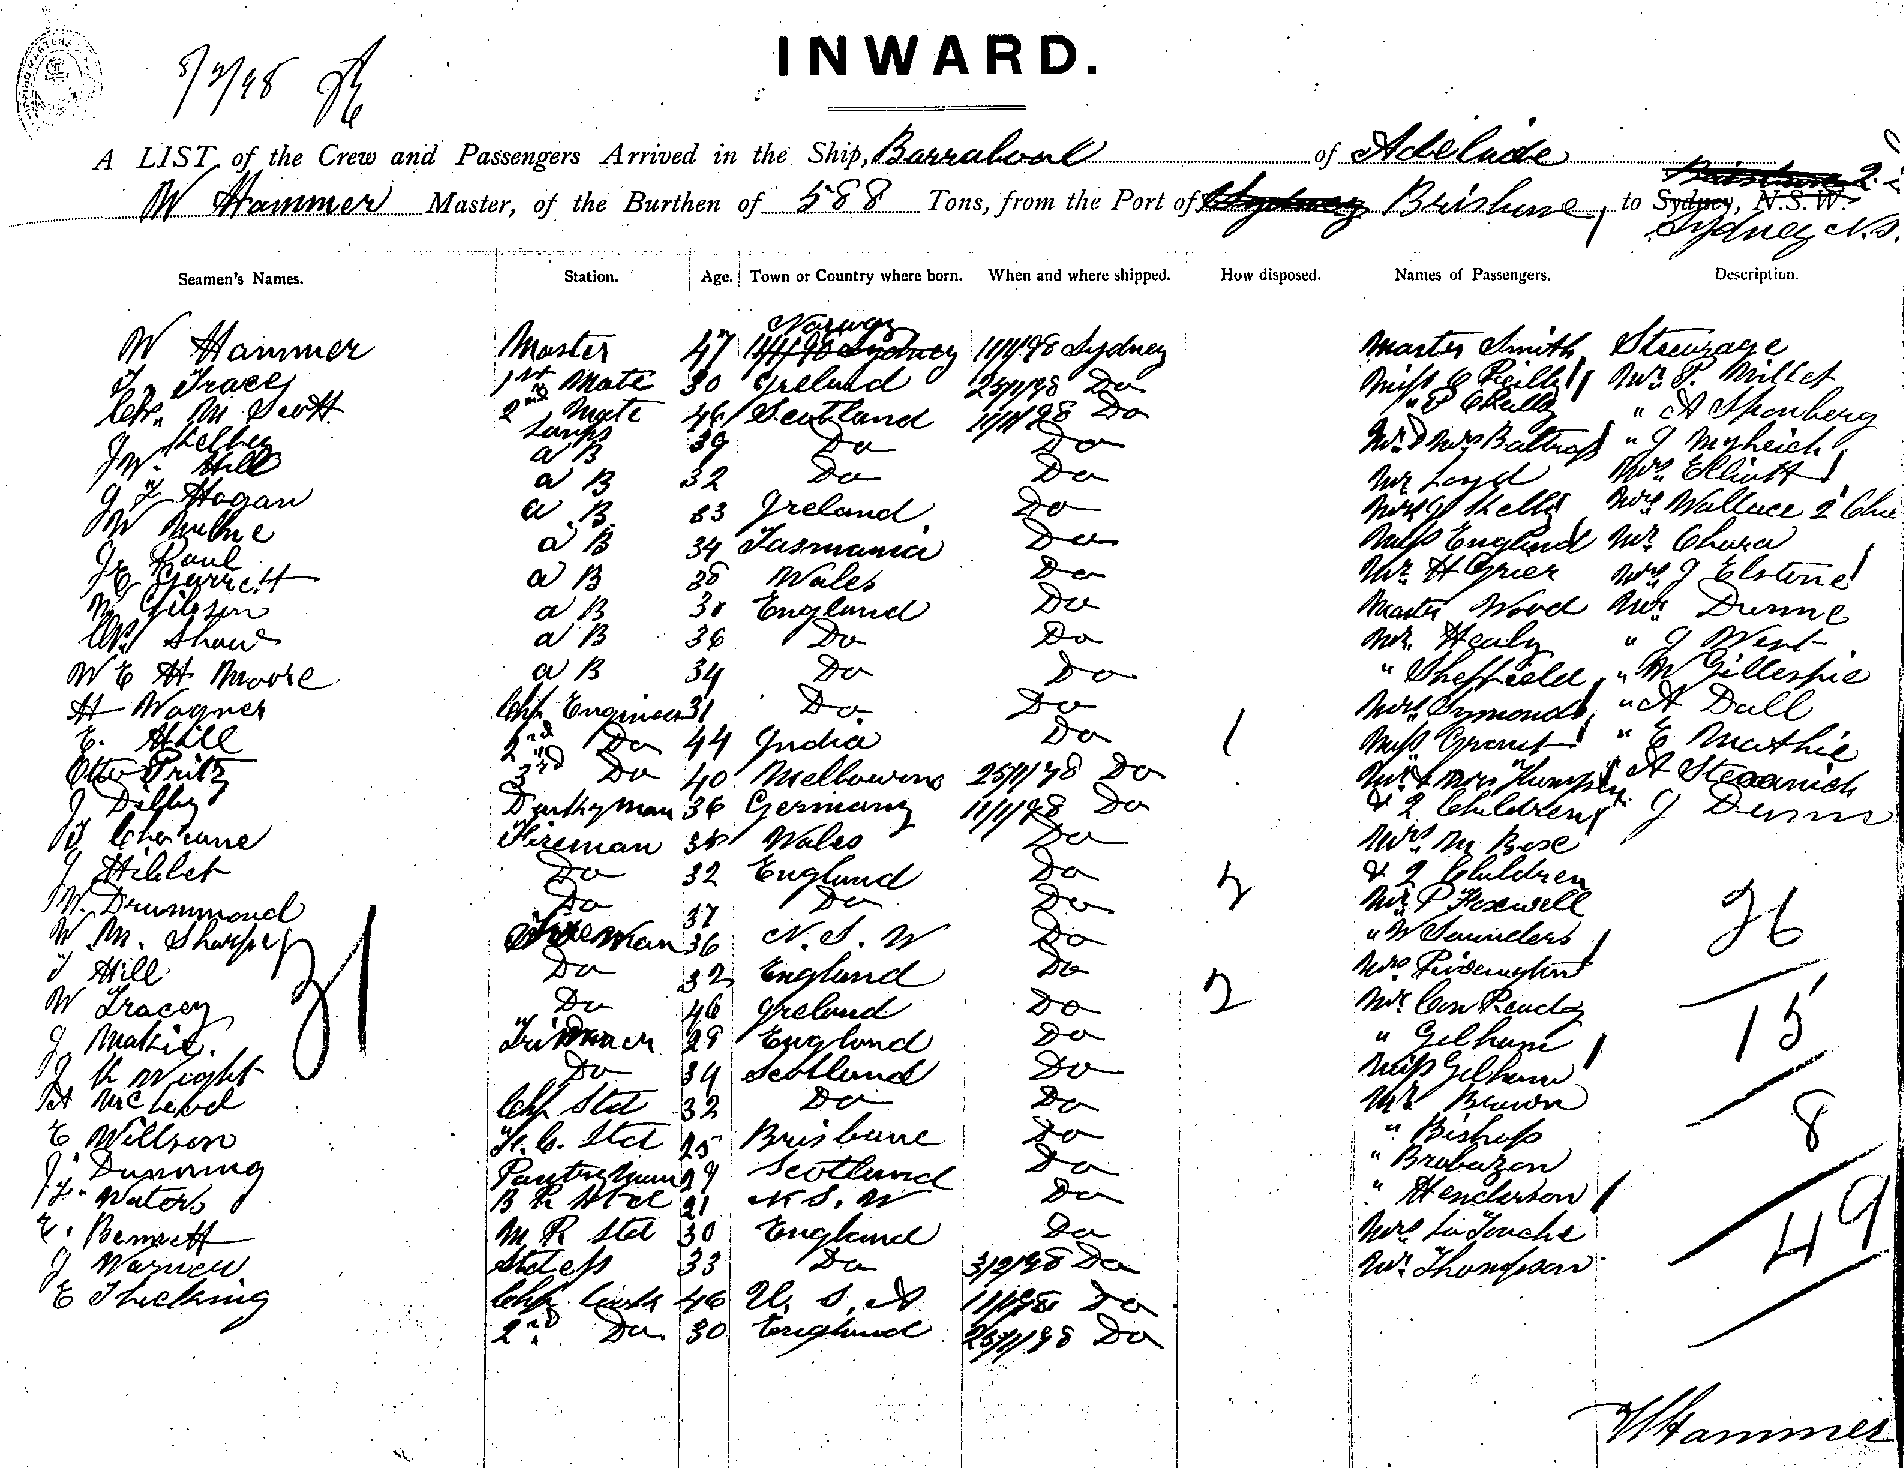 INWARD.
8/2/98
A LIST of the Crew and Passengers Arrived in the Ship, Barrabool of Adelaide
W Hammer Master, of the Burthen of 588 Tons, from the Port of Sydney Brisbane, to Sydney, N.S.W. Brisbane
Sydney N.S.
Seamen's Names. Station. Age. Town or Country where born. When and where shipped. How disposed. Names of Passengers. Description.
Norway
W Hammer Master 47 Sydney 11/1/98 Sydney Master Smith Steerage
Tracey 1st Mate 30 Ireland 25/1/98 Do Miss C Reilly Mr P. Millet
M Scott 2nd Mate 46 Scotland 11/1/98 Do " Reilly " A Sponberg
Kelley Lamps 39 Do Do Mr & Mrs " J
W. Hill a B 32 Do Do Mr Loyd Mrs Elliott
J T Hogan a B Ireland Do Mrs J Kelly Mrs Wallace 2
W Milne a B 34 Tasmania Do Miss England Mr
J Paul a B 38 Wales Do Mr H Grier Mrs J Elstone
J E Garrett a B 30 England Do Master Wood Mr Dunne
W Gibson a B 36 Do Do Mr Healy " J West
Chs Shaw a B 34 Do Do " Sheffield " W Gillespie
W E H Moore Chf Engineer 31 Do Do Mrs Symonds " A Dall
H Wagner 2nd Do 44 India Do 1 Miss Grant " E Mathie
E. Hill 3rd Do 40 Melbourne 25/1/98 Do Mr & Mrs Thompson A
Otto Fritz Donkeyman 36 Germany 11/1/98 Do & 2 Children J Dunn
J Dilby Fireman 38 Wales Do Mrs M Bose
Do 32 England Do & 2 Children
J Do 37 Do Do Mr P Foxwell
W. Drummond Fireman 36 N. S. W Do " W Saunders 26
W M. Sharpe Do 32 England Do Mrs
T Hill 31 Do 46 Ireland Do 2 Mr 15
W Tracey Trimmer 29 England Do " Gelham
J Mathie. Do 34 Scotland Do Miss Gelham
J W Wright Chf Std 32 Do Do Mr Brown 8
A McLeod F. C. Std 25 Brisbane Do " Bishop
E Willson Pantryman 29 Scotland Do " Brabazon
J Dunning B R Std 21 N S. W Do " Henderson
J. Waters M R Std 30 England Do Mrs La Touche 49
E. Bennett Stdess 33 Do 3/2/98 Do Mr. Thompson
J Warner Chf Cook 46 U. S. A 11/1/98 Do
E 2nd Do 30 England 25/1/98 Do
W Hammer